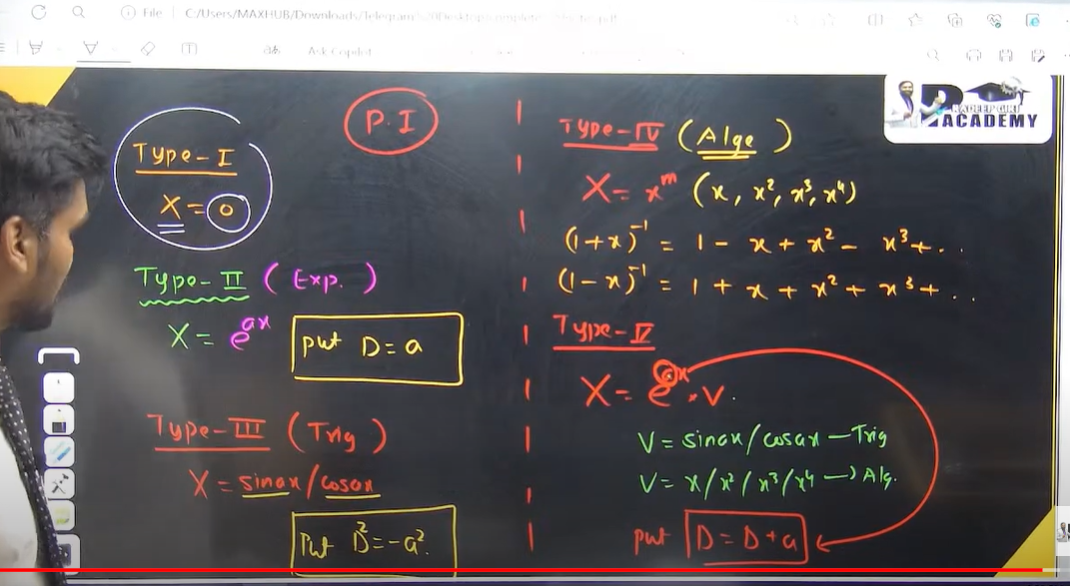 File
C:/Users/MAXHUB/Downloads/Telegram
Ask Copilot
P.I
Type-I
X = 0
Type-II (Exp.)
X = e^{ax}
put D = a
Type-III (Trig)
X = sinax/cosax
Put D² = -a².
ACADEMY
Type-IV (Alge)
X = x^m (x, x², x³, x⁴)
(1+x)⁻¹ = 1 - x + x² - x³ + ..
(1-x)⁻¹ = 1 + x + x² + x³ + ..
Type-V
X = e^{ax}.V.
V = sinax/cosax — Trig
V = x/x²/x³/x⁴ → Alg.
put D = D+a